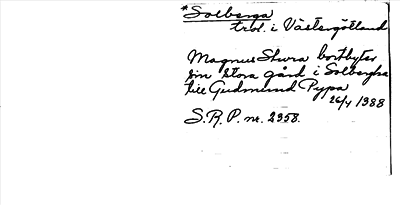 *Solberga
trol. i Västergötland
Magnus Sture bortbyter
sin stora gård i Solbergha
till Gudmund Pypa
26/4 1388
S.R.P. nr. 2358.